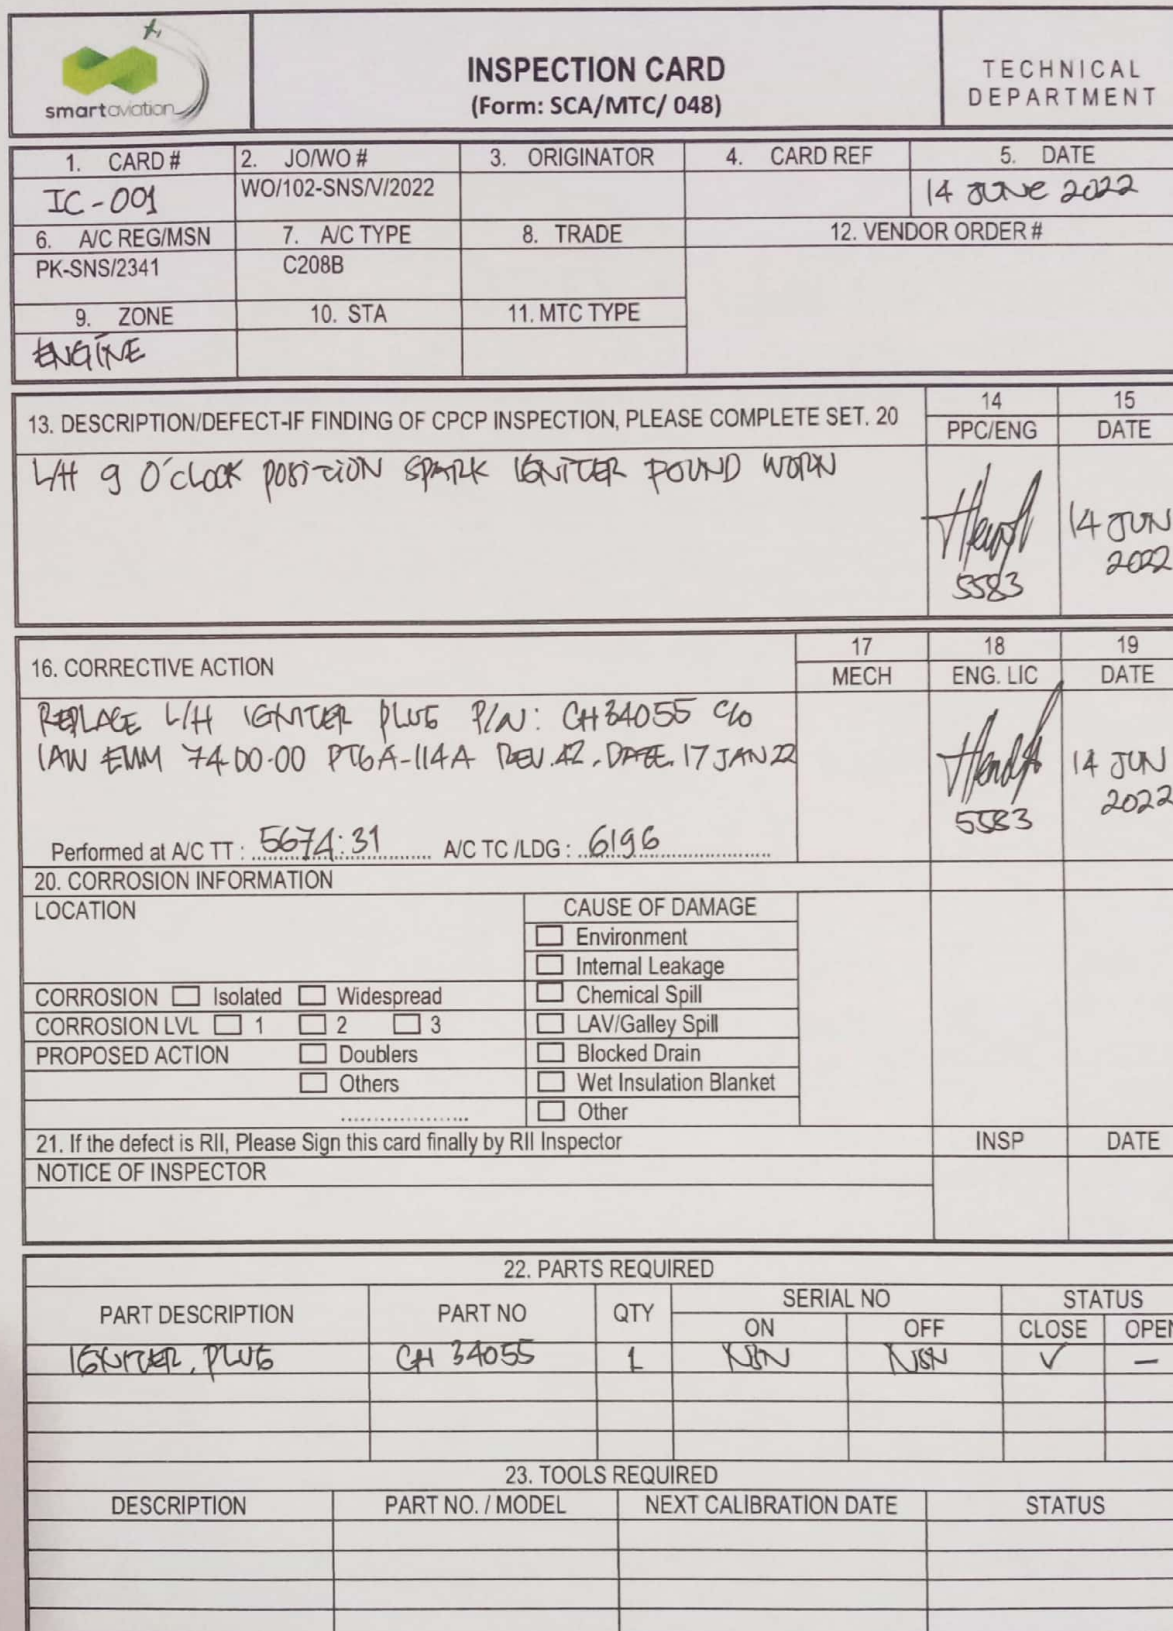 smartaviation
INSPECTION CARD
(Form: SCA/MTC/ 048)
TECHNICAL
DEPARTMENT
1. CARD # 2. JO/WO # 3. ORIGINATOR 4. CARD REF 5. DATE
IC-001 WO/102-SNS/V/2022 14 JUNE 2022
6. A/C REG/MSN 7. A/C TYPE 8. TRADE 12. VENDOR ORDER #
PK-SNS/2341 C208B
9. ZONE 10. STA 11. MTC TYPE
ENGINE
13. DESCRIPTION/DEFECT-IF FINDING OF CPCP INSPECTION, PLEASE COMPLETE SET. 20 14 15
PPC/ENG DATE
L/H 9 O'CLOCK POSITION SPARK IGNITER FOUND WORN
14 JUN
2022
5583
16. CORRECTIVE ACTION 17 18 19
MECH ENG. LIC DATE
REPLACE L/H IGNITER PLUG P/N: CH34055 C/O
IAW EMM 74-00-00 PT6A-114A REV.42. DATE. 17 JAN 22
14 JUN
2022
5583
Performed at A/C TT : 5674:31 A/C TC /LDG : 6196
20. CORROSION INFORMATION
LOCATION CAUSE OF DAMAGE
Environment
Internal Leakage
CORROSION Isolated Widespread Chemical Spill
CORROSION LVL 1 2 3 LAV/Galley Spill
PROPOSED ACTION Doublers Blocked Drain
Others Wet Insulation Blanket
Other
21. If the defect is RII, Please Sign this card finally by RII Inspector INSP DATE
NOTICE OF INSPECTOR
22. PARTS REQUIRED
PART DESCRIPTION PART NO QTY SERIAL NO STATUS
ON OFF CLOSE OPEN
IGNITER, PLUG CH 34055 1 NSN NSN ✓ —
23. TOOLS REQUIRED
DESCRIPTION PART NO. / MODEL NEXT CALIBRATION DATE STATUS